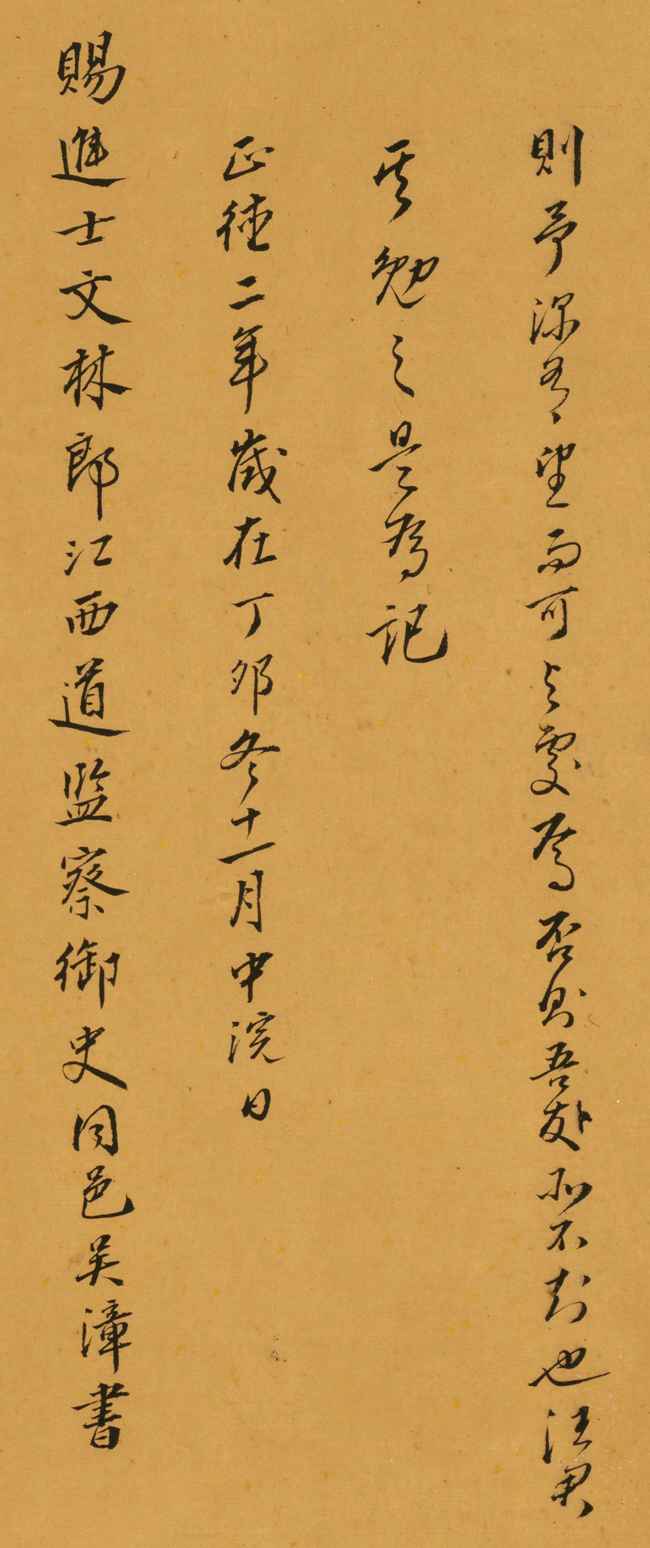 則予深有望而可與處焉否則吾敢所不知也汪君
其勉之是為記
正德二年歲在丁卯冬十一月中浣日
賜進士文林郎江西道監察御史同邑吴漳書